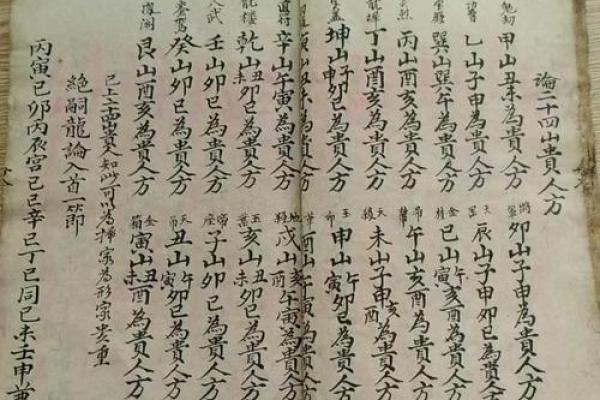 論二十四山貴人方
甲山丑未為貴人方
卯山子申為貴人方
乙山子申為貴人方
辰山子申卯巳為貴人方
巽山巽午為貴人方
巳山午寅亥酉為貴人方
丙山酉亥為貴人方
午山亥酉為貴人方
丁山酉亥為貴人方
未山子申亥酉為貴人方
坤山子申卯巳為貴人方
申山午寅卯巳為貴人方
山丑未為貴人方
酉山午寅為貴人方
辛山午寅為貴人方
戌山亥酉午寅為貴人方
乾山丑未卯巳為貴人方
亥山丑未卯巳為貴人方
壬山卯巳為貴人方
子山卯巳為貴人方
癸山卯巳為貴人方
丑山午寅卯巳為貴人方
艮山酉亥為貴人方
寅山丑未酉為貴人方
已上貴人知此可以為家為形家貴重
絕嗣龍論入首一節
丙寅己卯丙辰宮己巳辛巳丁巳同己未壬申兼